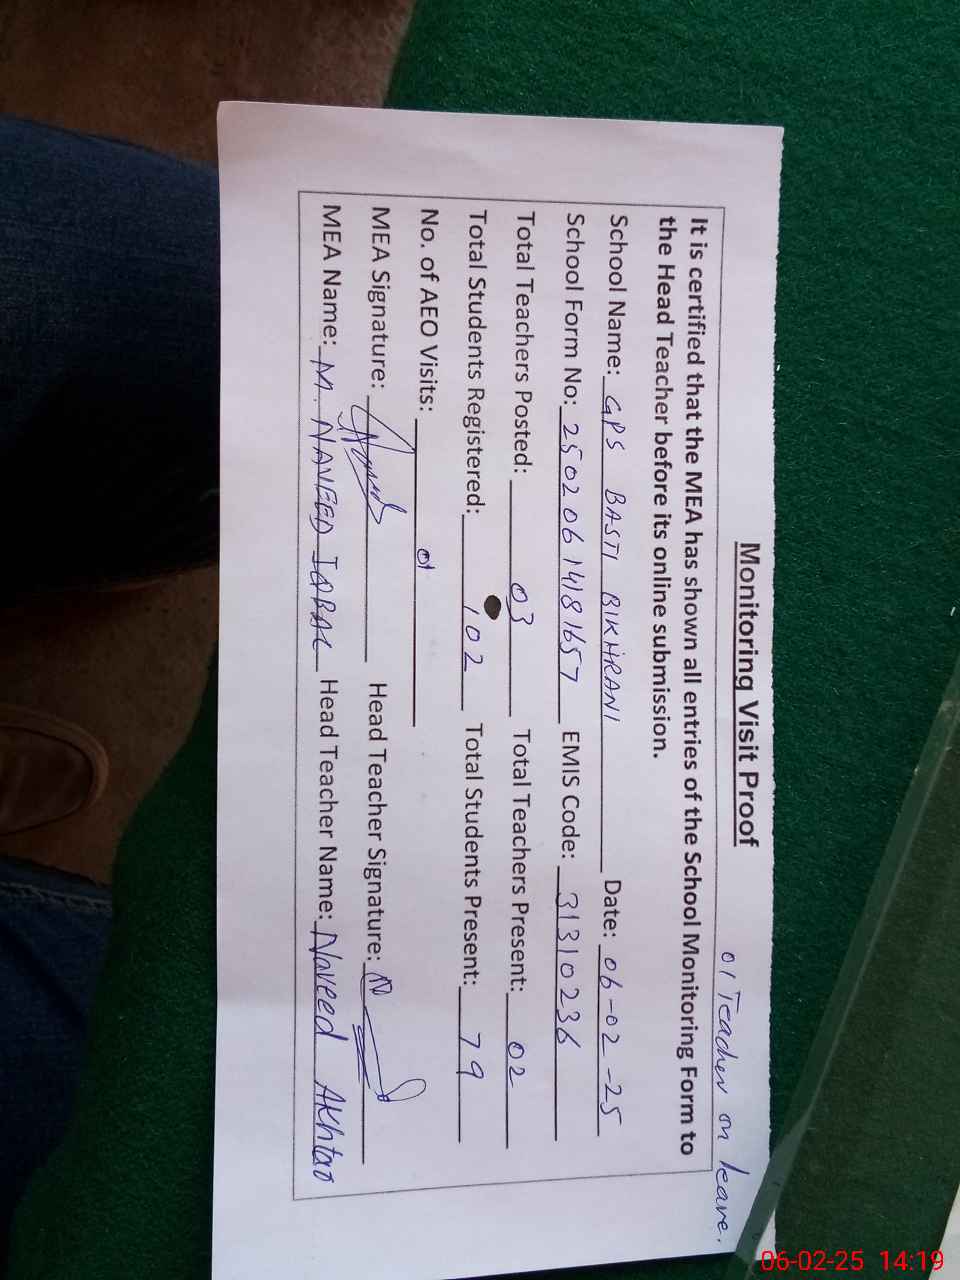 Monitoring Visit Proof
01 Teacher on leave.
It is certified that the MEA has shown all entries of the School Monitoring Form to
the Head Teacher before its online submission.
School Name: GPS BASTI BIKHRANI Date: 06-02-25
School Form No: 25020614181657 EMIS Code: 31310236
Total Teachers Posted: 03 Total Teachers Present: 02
Total Students Registered: 102 Total Students Present: 79
No. of AEO Visits: 01
MEA Signature: Head Teacher Signature:
MEA Name: M. NAVEED IQBAL Head Teacher Name: Naveed Akhtar
06-02-25 14:19